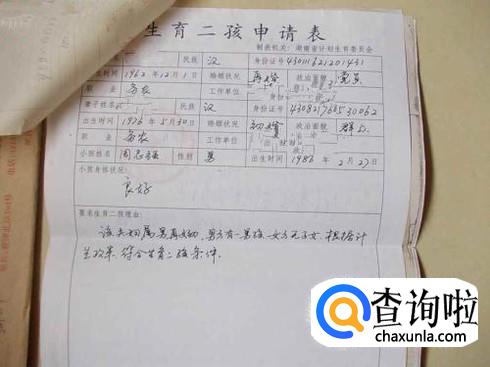 生育二孩申请表
制表机关：湖南省计划生育委员会
民族 汉 身份证号
出生时间 1962年12月1日 婚姻状况 再婚 政治面貌 党员
职业 务农 工作单位
妻子姓名 民族 汉 身份证号
出生时间 1976年5月30日 婚姻状况 初婚 政治面貌 群众
职业 务农 工作单位
小孩姓名 周志强 性别 男 出生时间 1986年2月27日
小孩身体状况：
良好
要求生育二孩理由：
该夫妇属男再女初，男方有一男孩，女方无子女，根据计
生政策，符合生育二孩条件。
查询啦
chaxunla.com